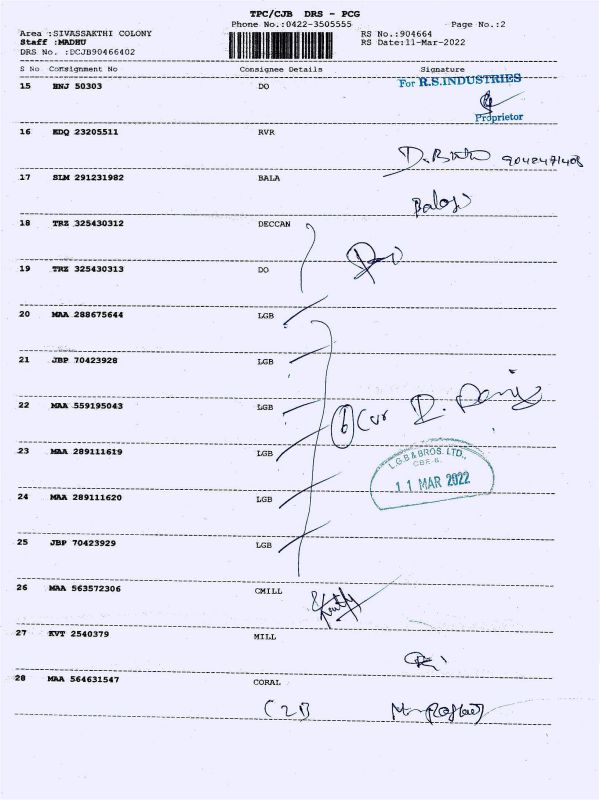 TPC/CJB DRS - PCG
Phone No.:0422-3505555 Page No.:2
Area :SIVASSAKTHI COLONY RS No.:904664
Staff :MADHU RS Date:11-Mar-2022
DRS No. :DCJB90466402
S No Consignment No Consignee Details Signature
15 HNJ 50303 DO For R.S.INDUSTRIES
Proprietor
16 KDQ 23205511 RVR
17 SLM 291231982 BALA
18 TRZ 325430312 DECCAN
19 TRZ 325430313 DO
20 MAA 288675644 LGB
21 JBP 70423928 LGB
22 MAA 559195043 LGB
6
23 MAA 289111619 LGB
L.G.B & BROS. LTD.,
CBE-6.
11 MAR 2022
24 MAA 289111620 LGB
25 JBP 70423929 LGB
26 MAA 563572306 CMILL
27 KVT 2540379 MILL
28 MAA 564631547 CORAL